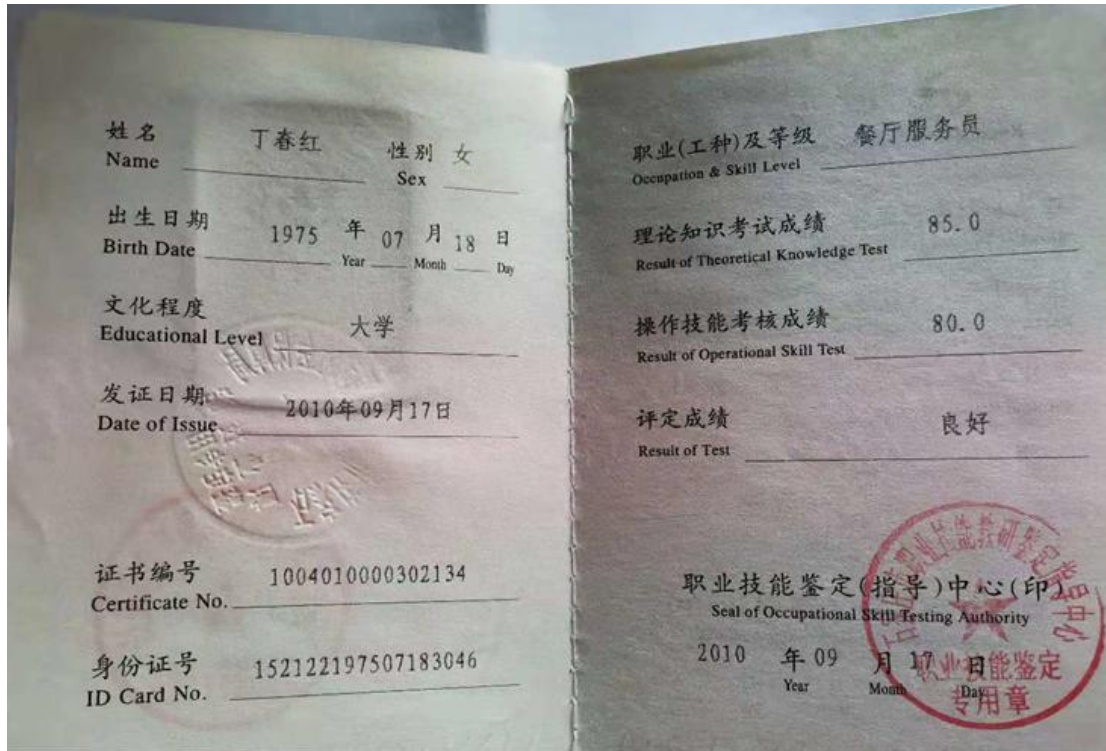 姓名 丁春红 性别 女
Name Sex
出生日期 1975 年 07 月 18 日
Birth Date Year Month Day
文化程度 大学
Educational Level
发证日期 2010年09月17日
Date of Issue
证书编号 1004010000302134
Certificate No.
身份证号 152122197507183046
ID Card No.
职业(工种)及等级 餐厅服务员
Occupation & Skill Level
理论知识考试成绩 85.0
Result of Theoretical Knowledge Test
操作技能考核成绩 80.0
Result of Operational Skill Test
评定成绩 良好
Result of Test
职业技能鉴定(指导)中心(印)
Seal of Occupational Skill Testing Authority
2010 年 09 月 17 日
Year Month Day
职业技能鉴定
专用章